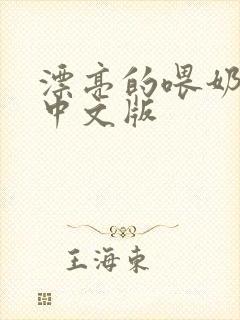 漂亮的喂奶
中文版
王海東